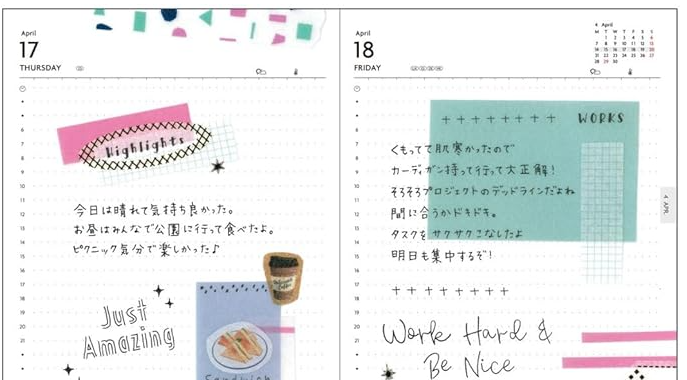 April
17
THURSDAY
6
7
8
9
10
11
12
13
14
15
16
17
18
19
20
21
Highlights
今日は晴れて気持ち良かった。
お昼はみんなで公園に行って食べたよ。
ピクニック気分で楽しかった♪
Just
Amazing
Coffee
Sandwich
April
18
FRIDAY
4 April
M T W T F S S
1 2 3 4 5 6
7 8 9 10 11 12 13
14 15 16 17 18 19 20
21 22 23 24 25 26 27
28 29 30
6
7
8
9
10
11
12
13
14
15
16
17
18
19
20
21
++++++++ WORKS
くもってて肌寒かったので
カーディガン持って行って大正解！
そろそろプロジェクトのデッドラインだよね
間に合うかドキドキ。
タスクをサクサクこなしたよ
明日も集中するぞ！
++++++++
Work Hard &
Be Nice
4 APR.